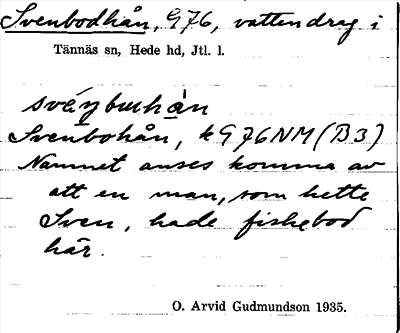 Svenbodhån, G76, vattendrag i
Tännäs sn, Hede hd, Jtl. l.
Svenbohån, k G76NM (B3)
Namnet anses komma av
att en man, som hette
Sven, hade fiskebod
här.
O. Arvid Gudmundson 1935.